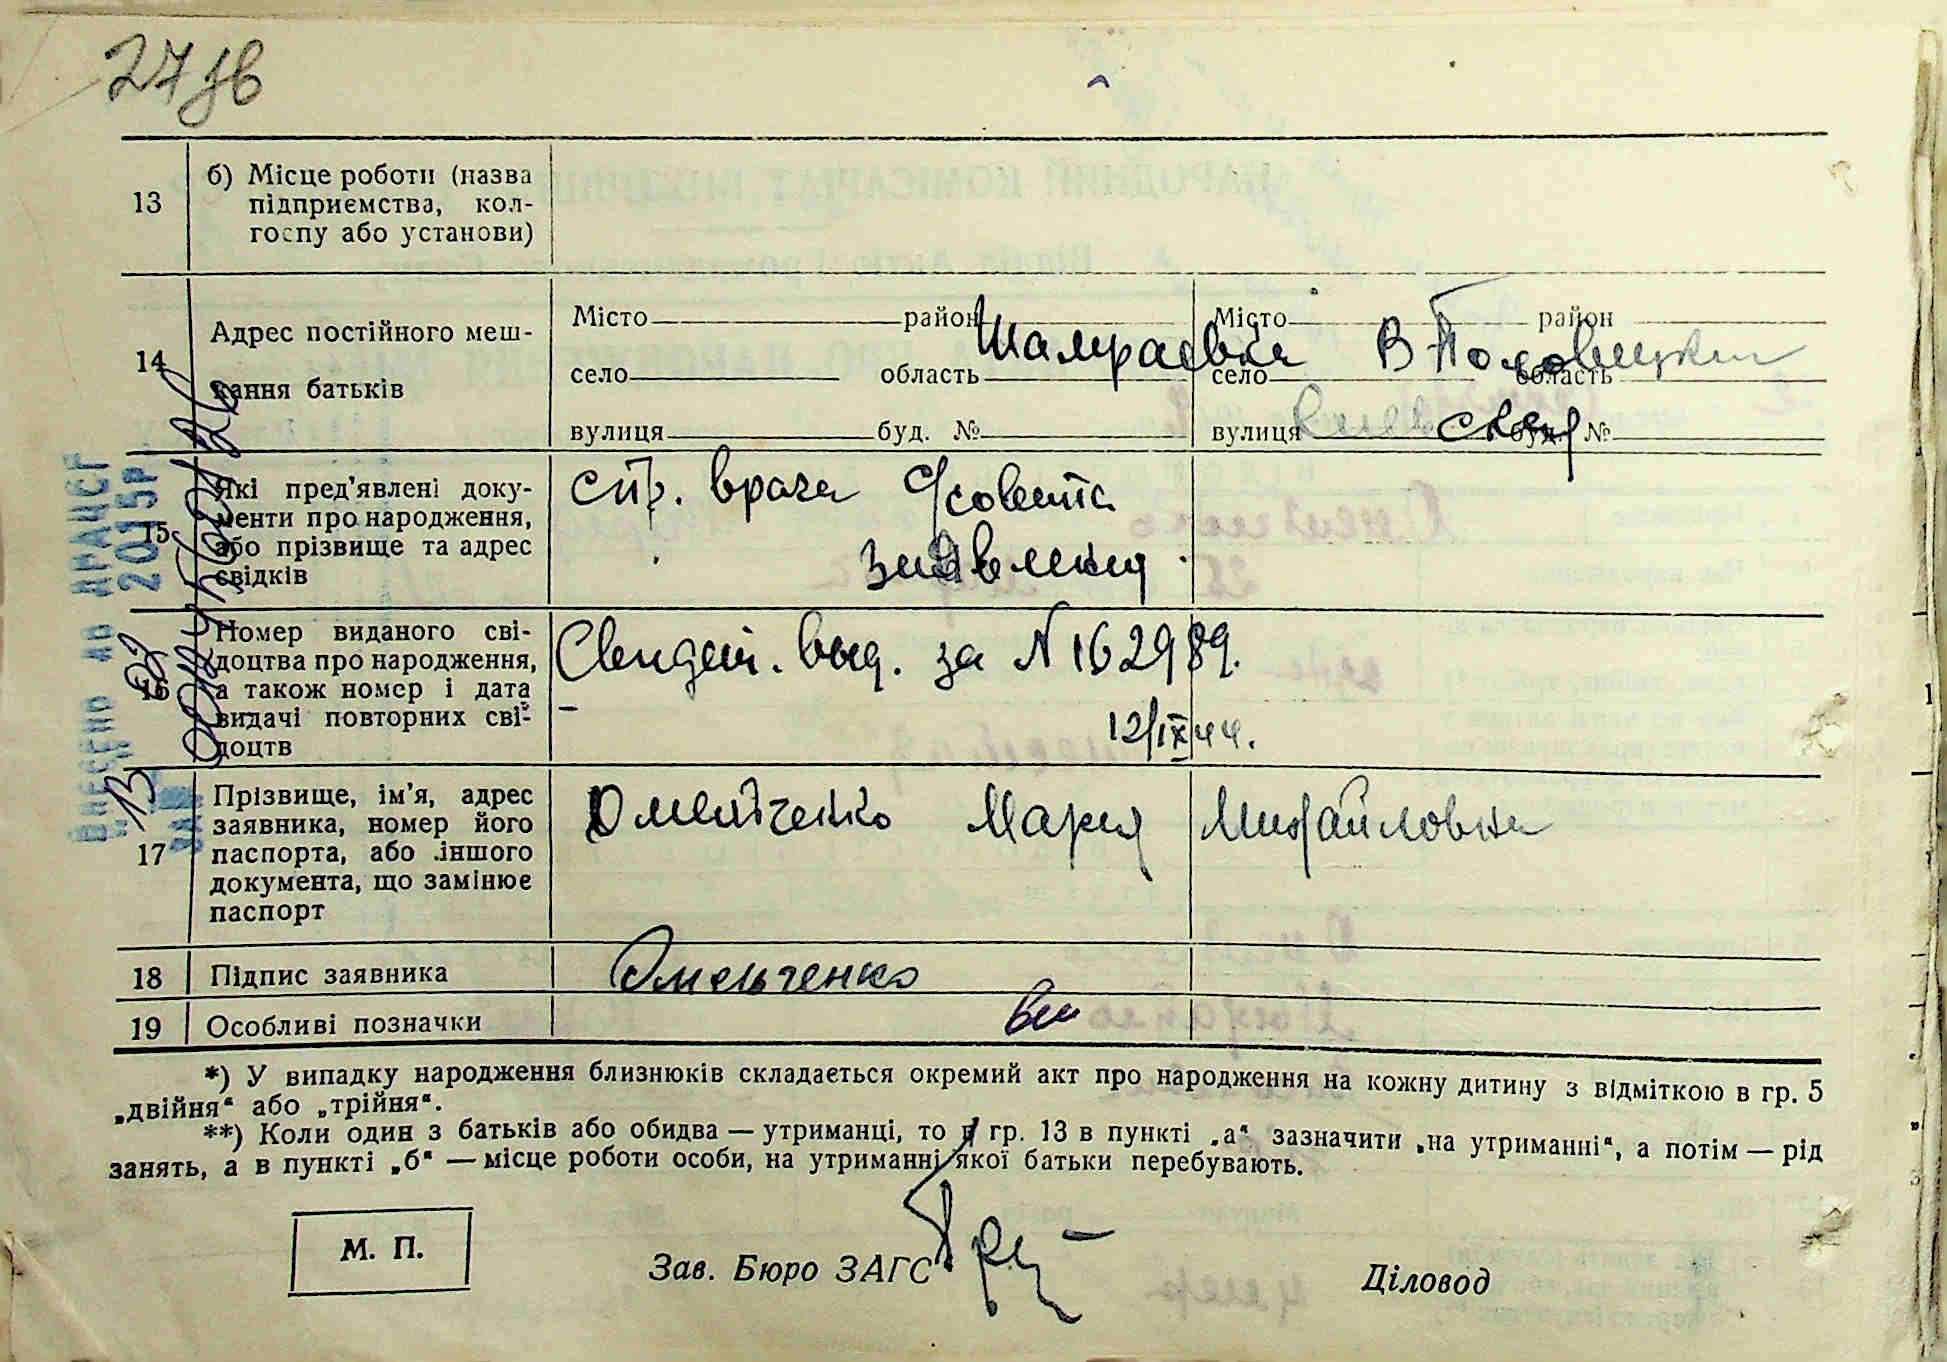 27 зв
13
б) Місце роботи (назва
підприємства, кол-
госпу або установи)
14
Адрес постійного меш-
кання батьків
Місто район Місто район
Шамраевка В Половецкий
село область село область
сел
вулиця буд. № вулиця буд. №
15
Які пред'явлені доку-
менти про народження,
або прізвище та адрес
свідків
спр. врача с/совета
заявление
16
Номер виданого сві-
доцтва про народження,
а також номер і дата
видачі повторних сві-
доцтв
Свидет. выд. за N 162989.
12/IX 44.
17
Прізвище, ім'я, адрес
заявника, номер його
паспорта, або іншого
документа, що замінює
паспорт
Омельченко Мария Михайловна
18 Підпис заявника Омельченко
19 Особливі позначки
*) У випадку народження близнюків складається окремий акт про народження на кожну дитину з відміткою в гр. 5
„двійня“ або „трійня“.
**) Коли один з батьків або обидва — утриманці, то в гр. 13 в пункті „а“ зазначити „на утриманні“, а потім — рід
занять, а в пункті „б“ — місце роботи особи, на утриманні якої батьки перебувають.
М. П.
Зав. Бюро ЗАГС
Діловод
Внесено до ДРАЦСГ
2015р